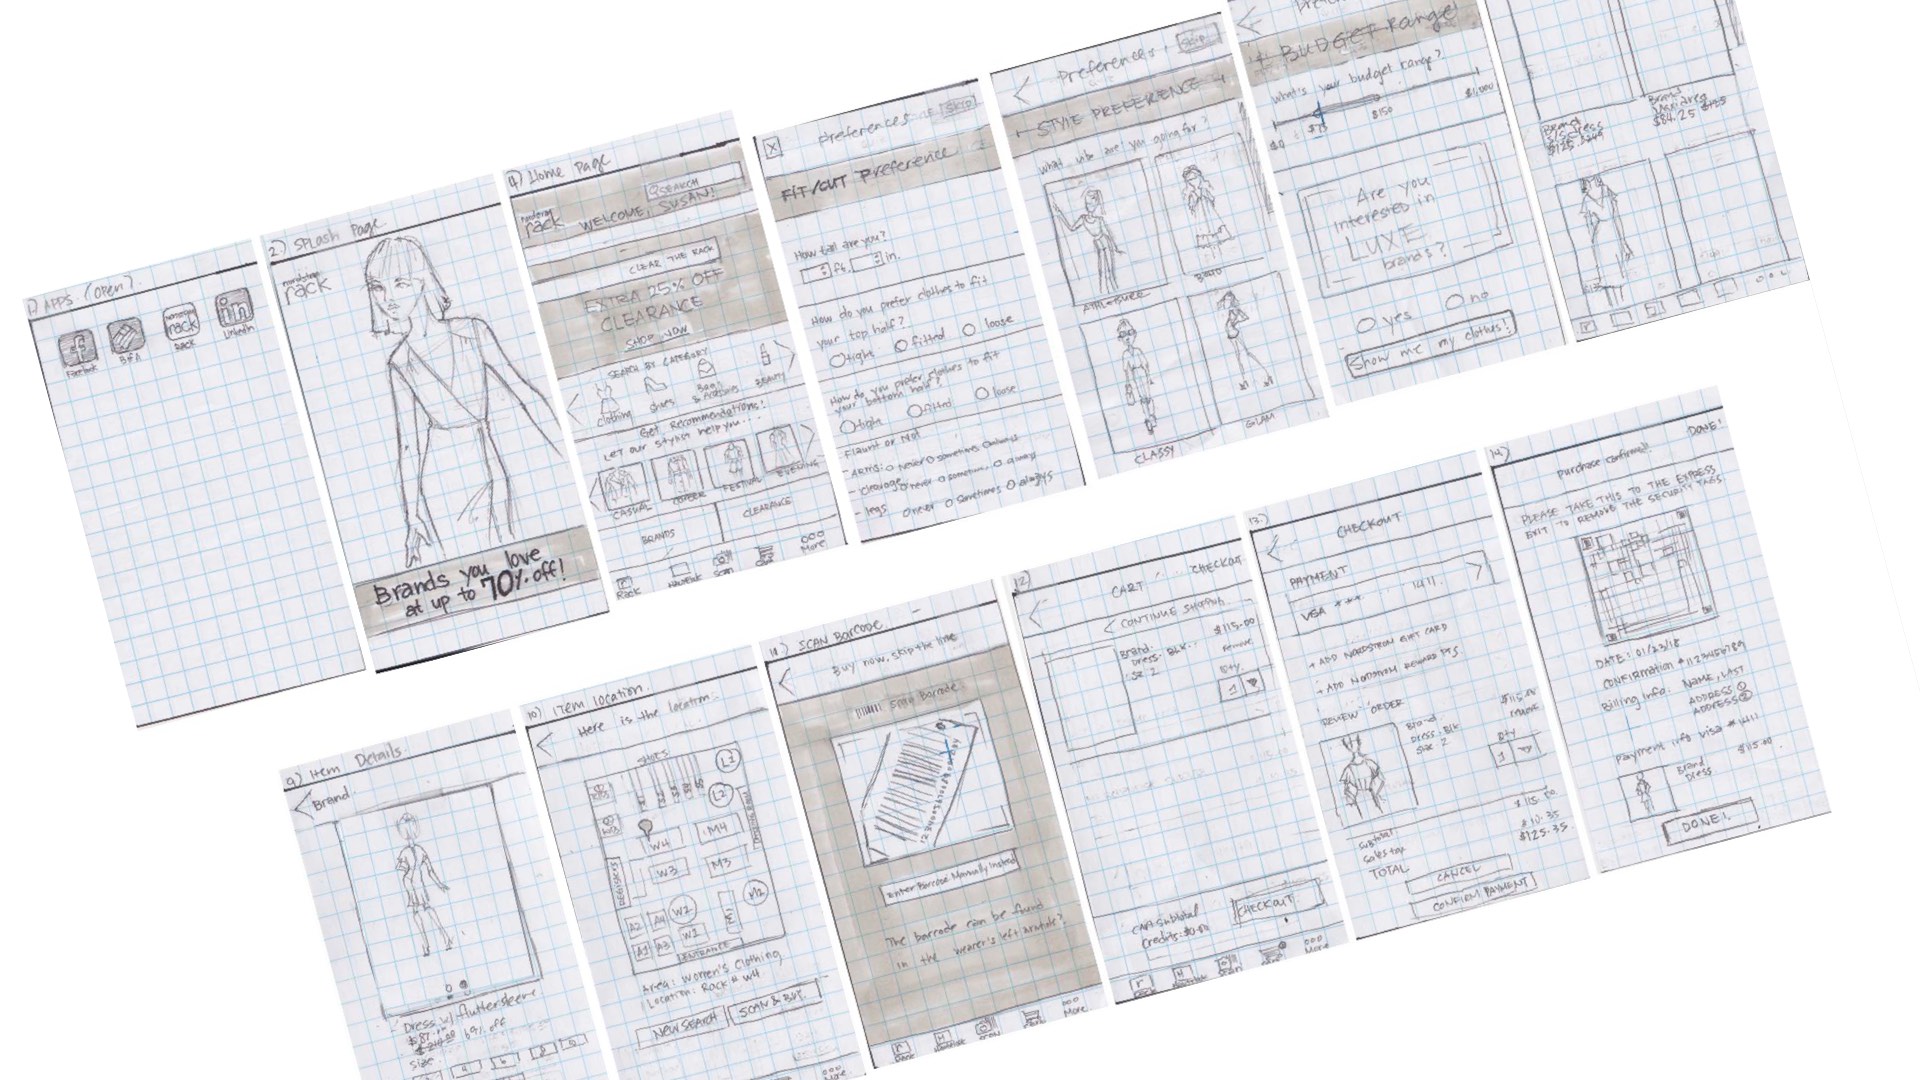 1) APPS (open).
Facebook
BofA
nordstrom
rack
Rack
in
LinkedIn
2.) Splash Page
nordstrom
rack
Brands you love
at up to 70% off!
4) Home Page
SEARCH
nordstrom
rack
WELCOME, SUSAN!
CLEAR THE RACK
EXTRA 25% OFF
CLEARANCE
SHOP NOW
SEARCH BY CATEGORY
clothing
shoes
BEAUTY
Get Recommendations!
Let our stylist help you...
CASUAL
CAREER
FESTIVAL
EVENING
BRANDS
CLEARANCE
Rack
Scan
More
X
Preferences
SKIP
FIT/CUT Preference
How tall are you?
ft.
in.
How do you prefer clothes to fit
your top half?
tight
fitted
loose
How do you prefer clothes to fit
your bottom half?
tight
fitted
loose
Flaunt or Not
- ARMS: never sometimes always
- cleavage never sometimes always
- legs never sometimes always
Preferences
SKIP
STYLE PREFERENCE
What vibe are you going for?
BOHO
CLASSY
GLAM
BUDGET Range
What's your budget range?
$0
$75
$150
$1,000
Are you
interested in
LUXE
brands?
yes
no
Show me my clothes!
Brand
$125
Brand
Maxi dress
$84.25 $125
9) Item Details.
Brand
Dress w/ fluttersleeve
$87
69% off
size:
10) Item location.
Here is the location.
SHOES
L1
L2
W4
M4
W3
M3
REGISTERS
A2
A4
W2
A1
A3
W1
ENTRANCE
Area: Women's Clothing
Location: Rack # W4
NEW SEARCH
SCAN & BUY
More
11.) SCAN BARCODE
Buy now, skip the line
Scan Barcode
Enter Barcode Manually Instead
The barcode can be found
in the wearer's left armhole?
Rack
Scan
More
12
CART
CHECKOUT
CONTINUE SHOPPING
Brand
Dress. BLK.
SZ. 2
$115.00
Remove
Qty
1
Cart subtotal
Credits: $0.00
CHECKOUT
Rack
Scan
More
13.)
CHECKOUT
PAYMENT
VISA *** 1411.
+ ADD NORDSTROM GIFT CARD
+ ADD NORDSTROM REWARD PTS
REVIEW ORDER
Brand
Dress, Blk
Size: 2
$115.00
remove
Qty
1
Subtotal
$115.00
Sales tax
$10.35
TOTAL
$125.35
CANCEL
CONFIRM PAYMENT
14.)
DONE!
Purchase confirmed!
PLEASE TAKE THIS TO THE EXPRESS
EXIT TO REMOVE THE SECURITY TAGS.
DATE: 01/23/18
CONFIRMATION #1123456789
Billing info: NAME, LAST
ADDRESS 1
ADDRESS 2
Payment info visa #1411
Brand
Dress
$115.00
DONE!